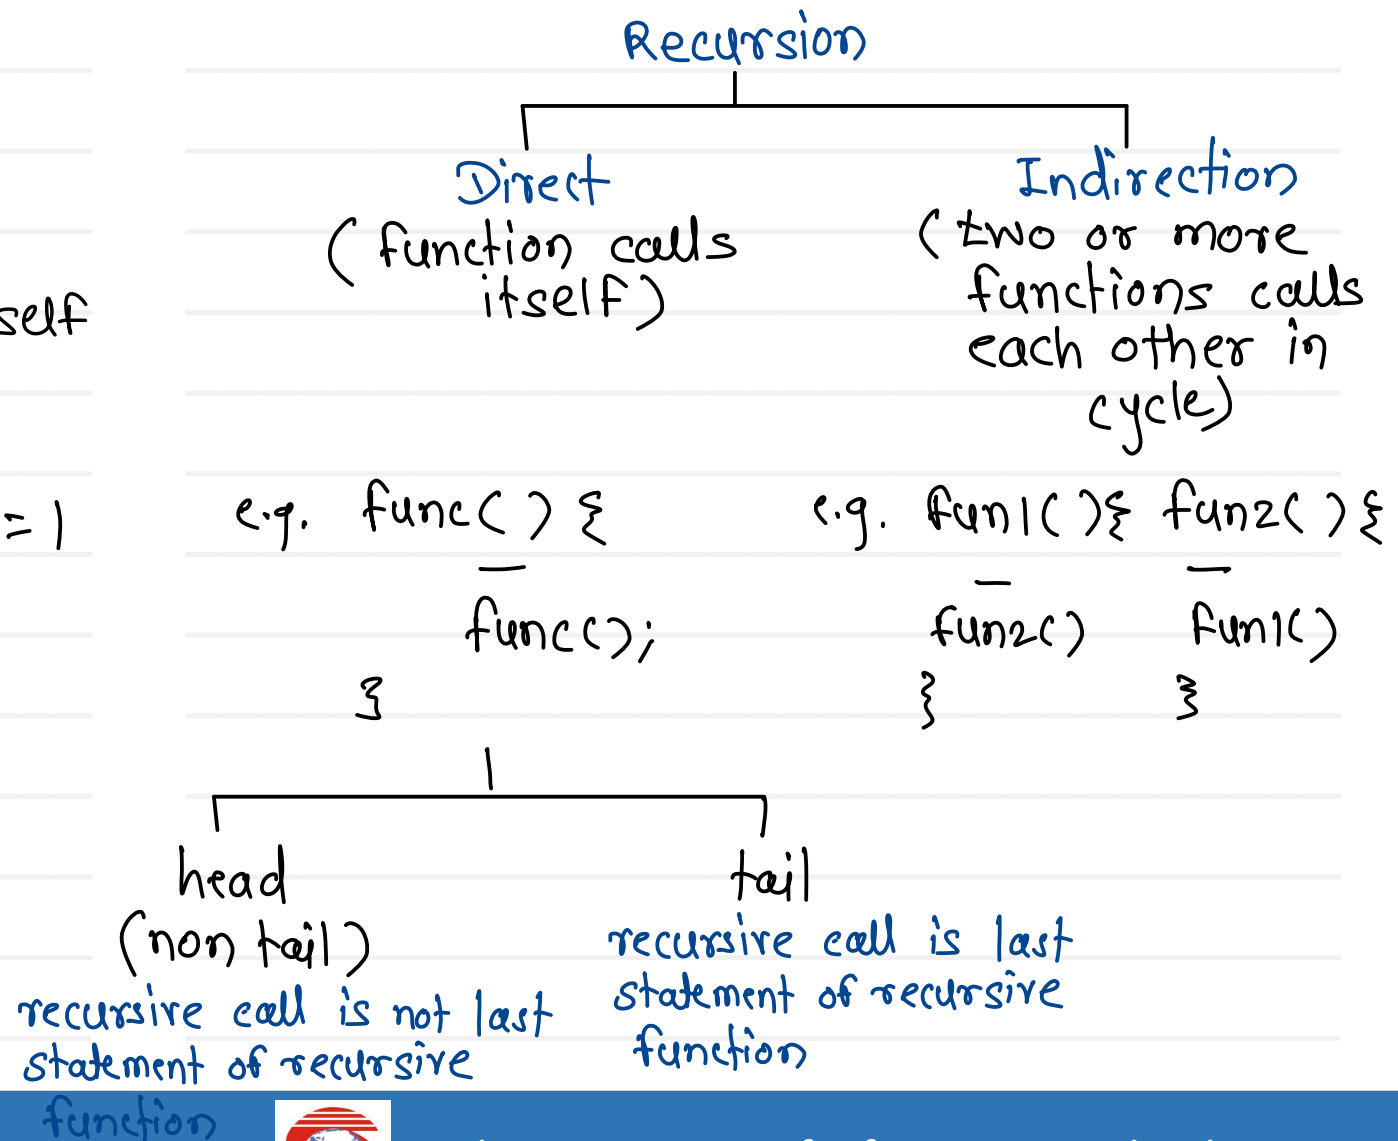 Recursion
Direct
(function calls
itself)
Indirection
(two or more
functions calls
each other in
cycle)
self
=1
e.g. func() {
func();
}
e.g. fun1(){ fun2(){
fun2() fun1()
} }
head
(non tail)
recursive call is not last
statement of recursive
function
tail
recursive call is last
statement of recursive
function